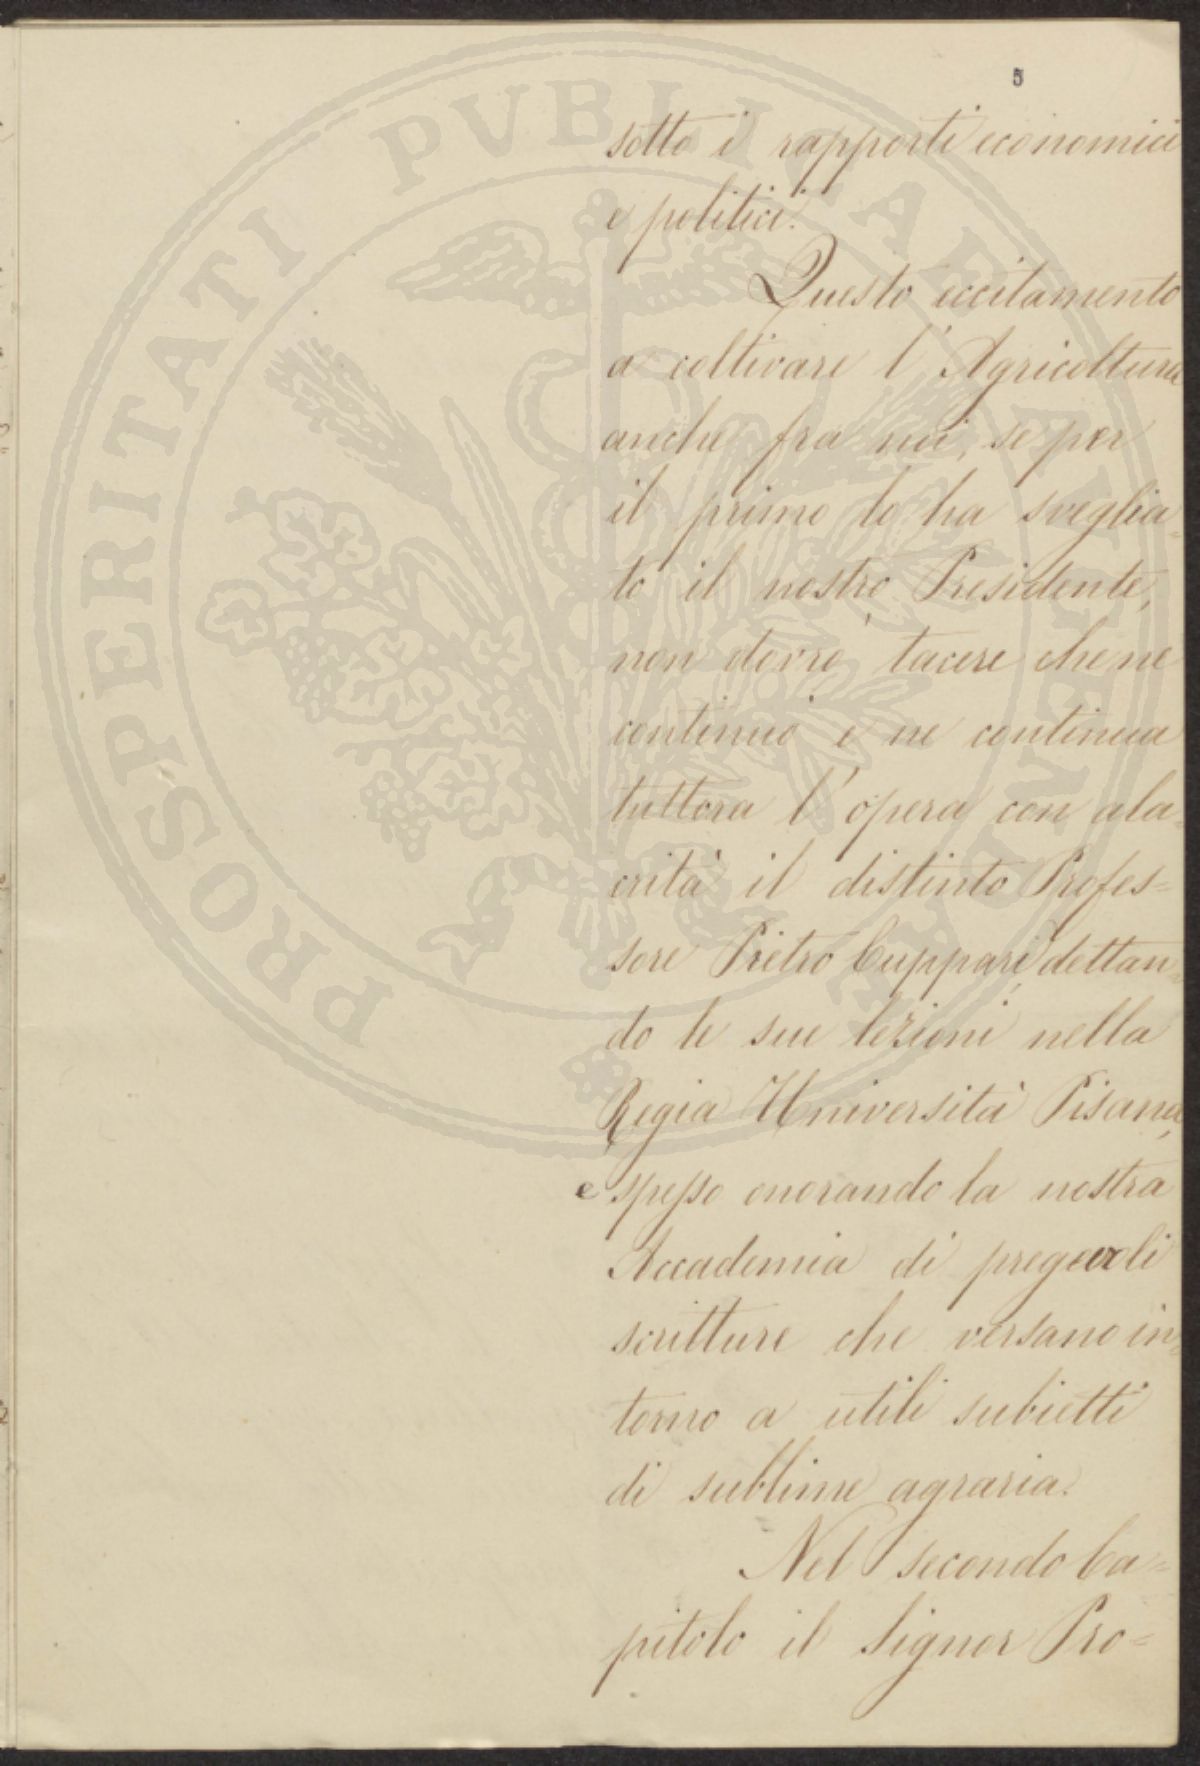 5
sotto i rapporti economici
e politici.
Questo eccitamento
a coltivare l'Agricoltura
anche fra noi, se per
il primo lo ha sveglia-
to il nostro Presidente,
non dovrò tacere che ne
continuò e ne continua
tuttora l'opera con ala-
crità il distinto Profes=
sore Pietro Cuppari, dettan-
do le sue lezioni nella
Regia Università Pisana,
e spesso onorando la nostra
Accademia di pregevoli
scritture che versano in-
torno a utili subietti
di sublime agraria.
Nel secondo Ca=
pitolo il Signor Pro=
PROSPERITATI PVBLICAE AVGENDAE